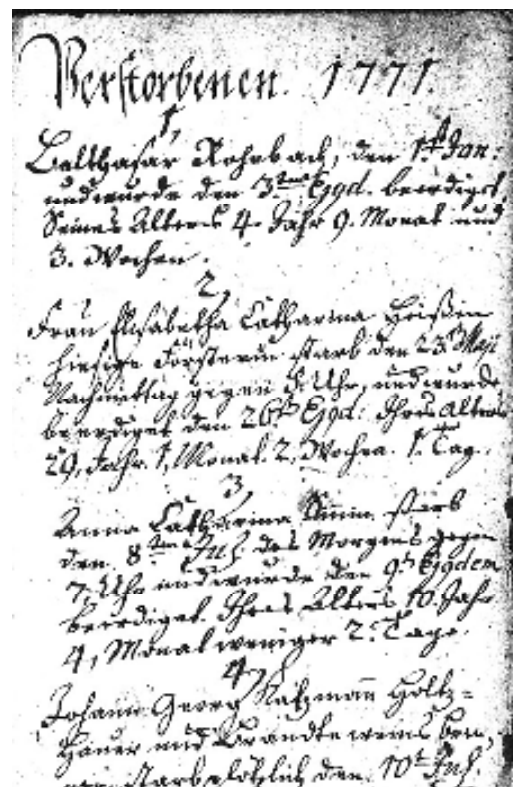 Verstorbenen. 1771.
1,
Balthasar Rohrbach, den 1.t Jan:
und wurde den 3.ten Ejsd. beerdiget,
Seines Alters 4. Jahr 9. Monat und
3. Wochen.
2,
Frau Elisabetha Catharina
hiesige Försterin starb den 23.t Maji
Nachmittag gegen Uhr, und wurde
beerdiget den 26.t Ejsd: Ihres Alters
29, Jahr 1, Monat 2, Wochen 1. Tag.
3,
Anna Catharina starb
den 8.ten des Morgens gegen
7. Uhr und wurde den 9.t
beerdiget. Ihres Alters 10. Jahr
4, Monat weniger 2. Tage.
4,
Johann Georg Holtz=
Hauer und
starb plötzlich den 10.t